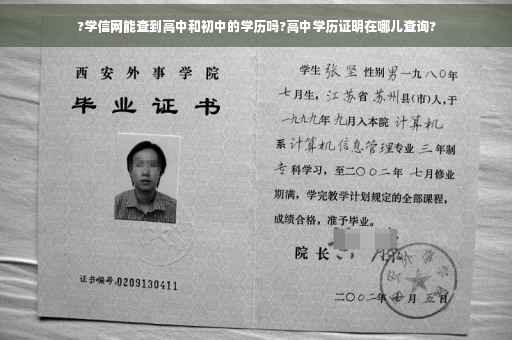 ?学信网能查到高中和初中的学历吗?高中学历证明在哪儿查询?
西安外事学院
毕业证书
证书编号:0209130411
学生 张坚 性别男一九八〇年
七月生，江苏省苏州县(市)人，于
一九九九年九月入本院 计算机
系计算机信息管理专业三年制
专科学习，至二〇〇二年七月修业
期满，学完教学计划规定的全部课程，
成绩合格，准予毕业。
院长
二〇〇二年 月五日